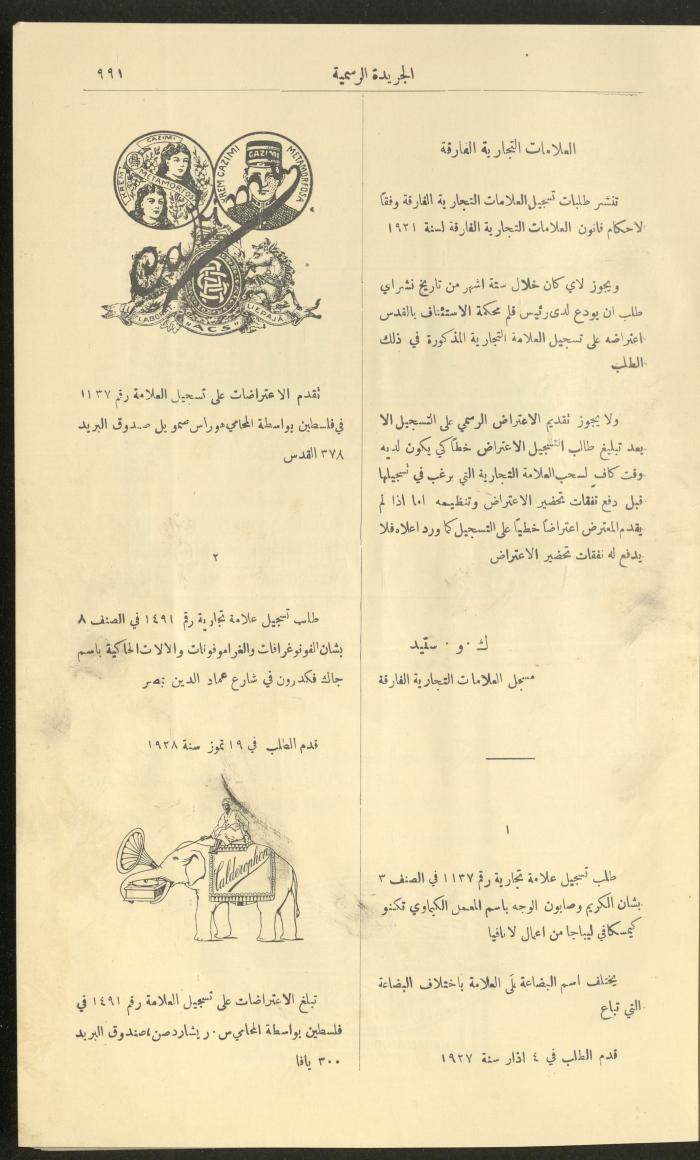 الجريدة الرسمية
٩٩١
العلامات التجارية الفارقة
تنشر طلبات تسجيل العلامات التجارية الفارقة وفقا
لاحكام قانون العلامات التجارية الفارقة لسنة ١٩٢١
ويجوز لاي كان خلال ستة اشهر من تاريخ نشر اي
طلب ان يودع لدى رئيس قلم محكمة الاستئناف بالقدس
اعتراضه على تسجيل العلامة التجارية المذكورة في ذلك
الطلب
ولا يجوز تقديم الاعتراض الرسمي على التسجيل الا
بعد تبليغ طالب التسجيل الاعتراض خطاً كي يكون لديه
وقت كافٍ لسحب العلامة التجارية التي يرغب في تسجيلها
قبل دفع نفقات تحضير الاعتراض وتنظيمه اما اذا لم
يقدم المعترض اعتراضاً خطياً على التسجيل كما ورد اعلاه فلا
يدفع له نفقات تحضير الاعتراض
ك . و . ستيد
مسجل العلامات التجارية الفارقة
١
طلب تسجيل علامة تجارية رقم ١١٣٧ في الصنف ٣
بشان الكريم وصابون الوجه باسم المعمل الكيماوي تكنو
كيمسكافي ليباجا من اعمال لاتافيا
يختلف اسم البضاعة على العلامة باختلاف البضاعة
التي تباع
قدم الطلب في ٤ اذار سنة ١٩٢٧
CAZIMI
METAMORFOSA
CREM CAZIMI
METAMORFOSA
CAZIMI
LABOR
"ACS"
LIEPAJĀ
تقدم الاعتراضات على تسجيل العلامة رقم ١١٣٧
في فلسطين بواسطة المحامي هوراس صمويل صندوق البريد
٣٧٨ القدس
٢
طلب تسجيل علامة تجارية رقم ١٤٩١ في الصنف ٨
بشان الفونوغرافات والغراموفونات والالات الحاكية باسم
جاك فكدرون في شارع عماد الدين بمصر
قدم الطلب في ١٩ تموز سنة ١٩٢٨
Calderophon
تبلغ الاعتراضات على تسجيل العلامة رقم ١٤٩١ في
فلسطين بواسطة المحامي س . ريشاردصن، صندوق البريد
٣٠٠ يافا